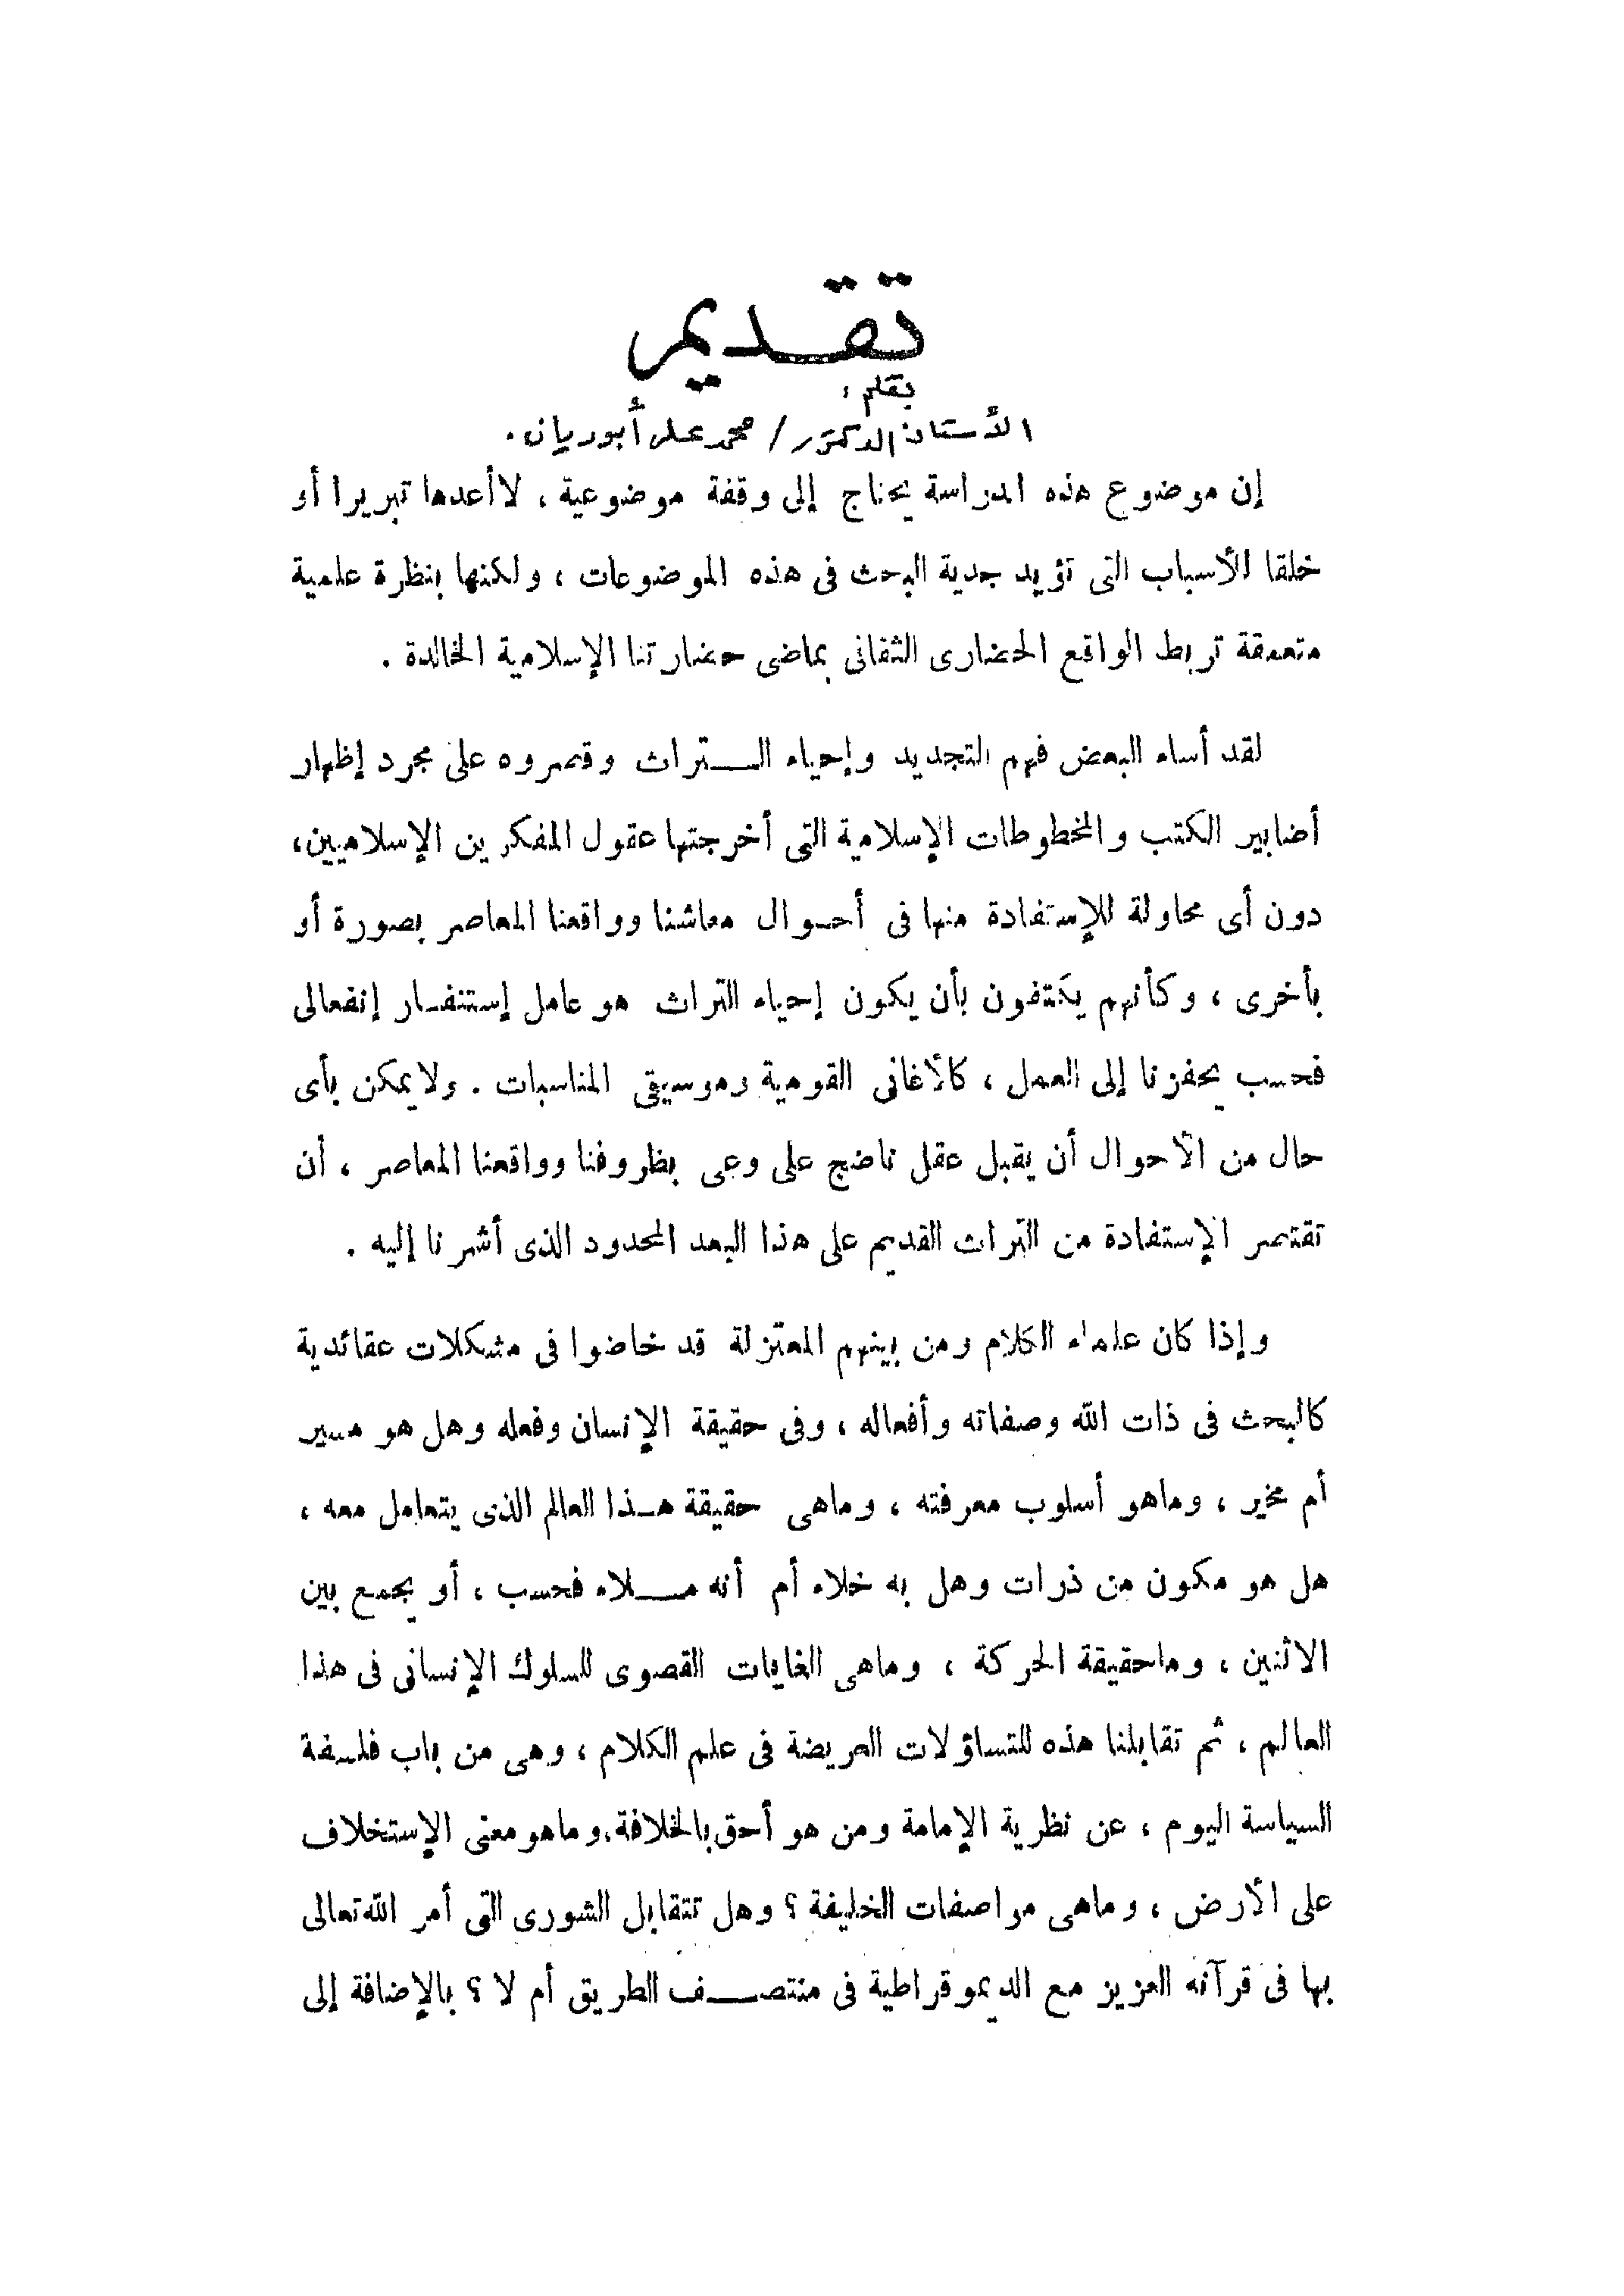 تقديم
بقلم :
الأستاذ الدكتور / محمد على أبو ريان .
إن موضوع هذه الدراسة يحتاج إلى وقفة موضوعية ، لا أعدها تبريرا أو
خلقا للأسباب التى تؤيد جدية البحث فى هذه الموضوعات ، ولكنها بنظرة علمية
متعمقة تربط الواقع الحضارى الثقافى بماضى حضارتنا الإسلامية الخالدة .
لقد أساء البعض فهم التجديد وإحياء التراث وقصروه على مجرد إظهار
أضابير الكتب والمخطوطات الإسلامية التى أخرجتها عقول المفكرين الإسلاميين ،
دون أى محاولة للإستفادة منها فى أحوال معاشنا وواقعنا المعاصر بصورة أو
بأخرى ، وكأنهم يكتفون بأن يكون إحياء التراث هو عامل إستنفار إنفعالى
فحسب يحفزنا إلى العمل ، كالأغانى القومية وموسيقى المناسبات . ولا يمكن بأى
حال من الأحوال أن يقبل عقل ناضج على وعى بظروفنا وواقعنا المعاصر ، أن
تقتصر الإستفادة من التراث القديم على هذا البعد المحدود الذى أشرنا إليه .
وإذا كان علماء الكلام ومن بينهم المعتزلة قد خاضوا فى مشكلات عقائدية
كالبحث فى ذات الله وصفاته وأفعاله ، وفى حقيقة الإنسان وفعله وهل هو مسير
أم مخير ، وماهو أسلوب معرفته ، وماهى حقيقة هذا العالم الذى يتعامل معه ،
هل هو مكون من ذرات وهل به خلاء أم أنه ملاء فحسب ، أو يجمع بين
الاثنين ، وماحقيقة الحركة ، وماهى الغايات القصوى للسلوك الإنسانى فى هذا
العالم ، ثم تقابلنا هذه للتساؤلات العريضة فى علم الكلام ، وهى من باب فلسفة
السياسة اليوم ، عن نظرية الإمامة ومن هو أحق بالخلافة ، وماهو معنى الإستخلاف
على الأرض ، وماهى مواصفات الخليفة ؟ وهل تتقابل الشورى التى أمر الله تعالى
بها فى قرآنه العزيز مع الديموقراطية فى منتصف الطريق أم لا ؟ بالإضافة إلى